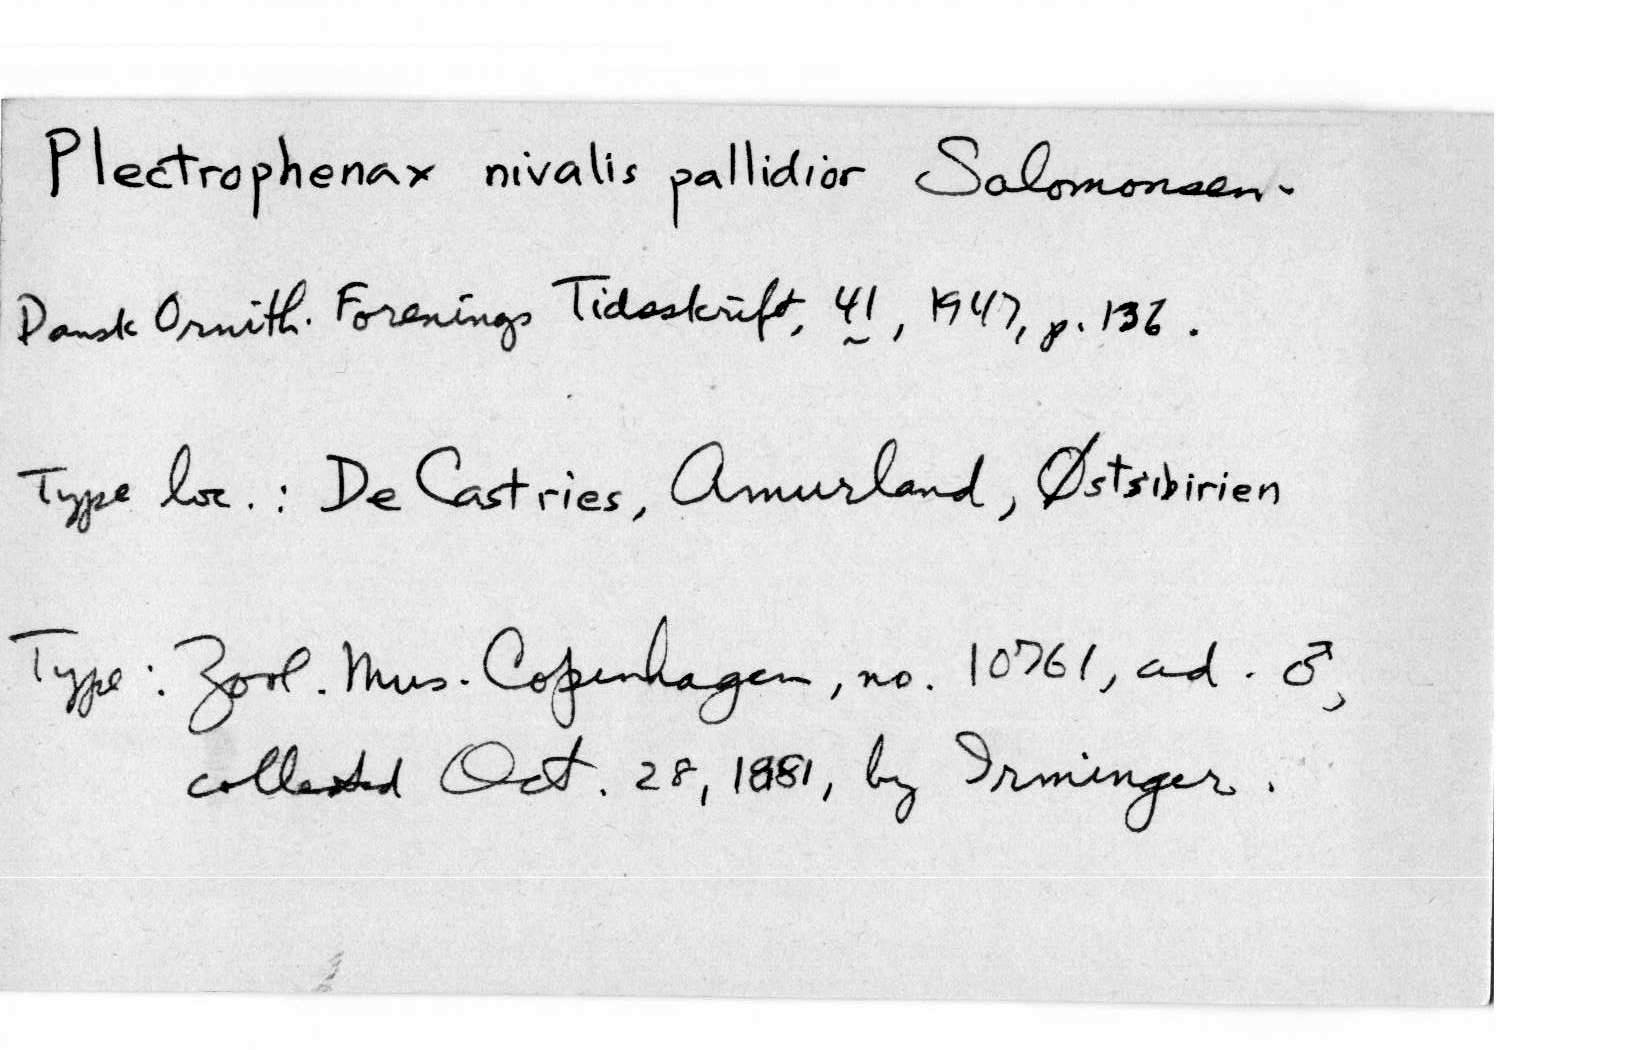 Plectrophenax nivalis pallidior Salomonsen.
Dansk Ornith. Forenings Tidsskrift, 41, 1947, p. 136.
Type loc.: De Castries, Amurland, Østsibirien
Type: Zool. Mus. Copenhagen, no. 10761, ad. ♂,
collected Oct. 28, 1881, by Irminger.